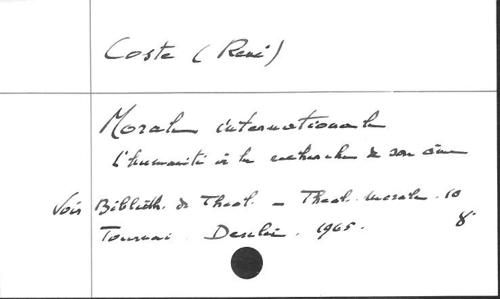 Coste (René)
Morale internationale
L'humanité à la recherche de son âme
Voir Biblioth. de Théol. - Théol. morale. 10
Tournai. Desclée. 1965. 8°